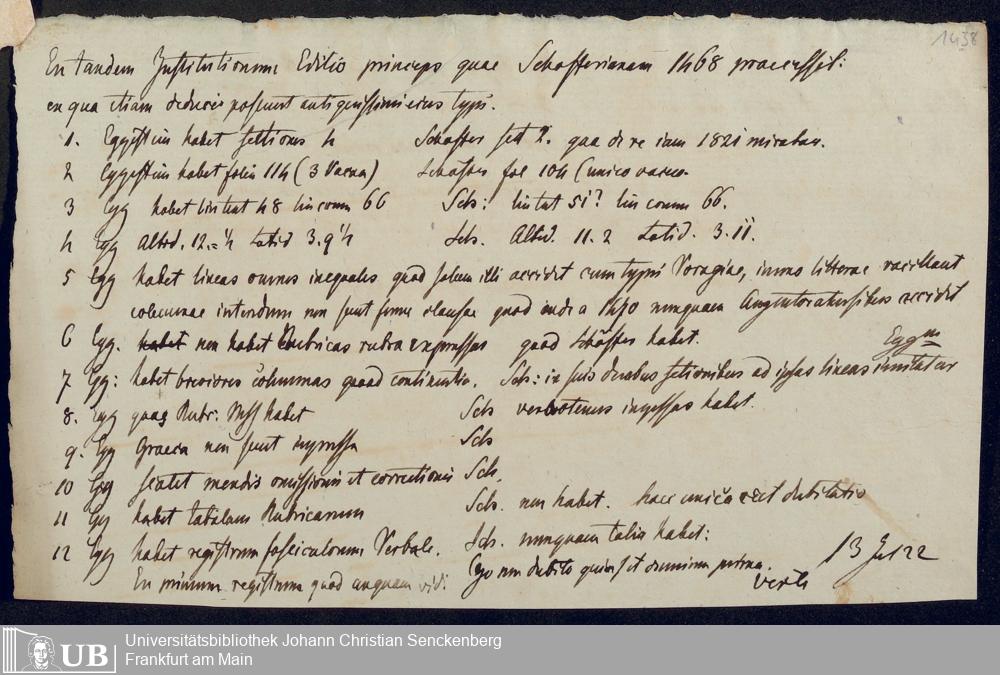 1438
En tandem Institutionum Editio princeps quae Schofferianam 1468 praecessit:
ex qua etiam deduci possunt antiquissimi eius typi.
1. Eggestein habet sectiones 4 Schoffer sect 2. qua de re iam 1821 mirabar.
2 Eggestein habet folia 114 (3 Vacua) Schoffer fol 104 (unico vacuo
3 Egg habet 48 lin comm 66 Sch: 51? lin comm 66.
4 Egg Altid. 12.=¼ Latid 3.9¼ Sch. Altid. 11.2 Latid. 3.11.
5 Egg habet lineas omnes inequales quod solum illi accidit cum typis Voragine, immo litterae vacillant
columnae interdum non sunt forme clausae quod 1470 nunquam accidit
6 Egg. habet non habet Rubricas rubra expressas quod Schöffer habet.
7 Egg: habet breviores columnas quoad continentia. Sch: in suis duabus setionibus ad ipsas lineas imitatur Eggnm
8. Egg quas Rubr. Mss habet Sch verbotenus impressas habet.
9. Egg Graeca non sunt impressa Sch
10 Egg scatet mendis omissionis et correctionis Sch.
11 Egg habet tabulam Rubricarum Sch. non habet. haec unica est dubitatio
12 Egg habet registrum fasciculorum Verbale. Sch. nunquam talia habet:
En primum registrum quod unquam vidi. Ego non dubito quin sit omnium prima. 13 122
verte
UB Universitätsbibliothek Johann Christian Senckenberg
Frankfurt am Main